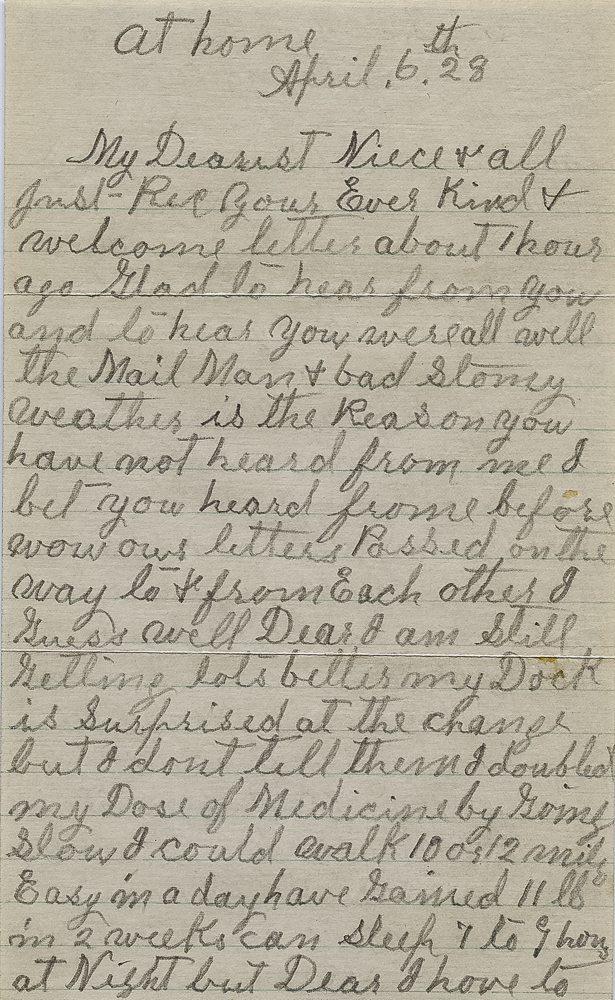 at home
April, 6.th 28
My Dearest Niece & all
Just - Rec Your Ever Kind &
welcome letter about 1 hour
ago Glad to hear from you
and to hear you were all well
the Mail Man & bad Stomy
weather is the Reason you
have not heard from me I
bet you heard frome before
wow our letters Passed on the
way to & from Each other I
Guess well Dear I am Still
Getting lots better my Dock
is Surprised at the change
but I dont tell them I doubled
my Dose of Medicine by Going
Slow I could walk 10 or 12 mile
Easy in a day have Gained 11 lb
in 2 weeks can Sleep 7 to 9 hours
at Night but Dear I have to